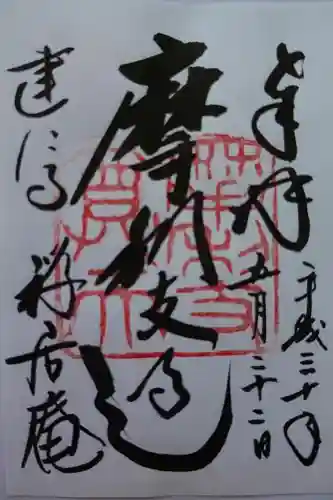 奉拝
平成三十年
五月二十二日
摩利支尊
建仁寺
禅居庵